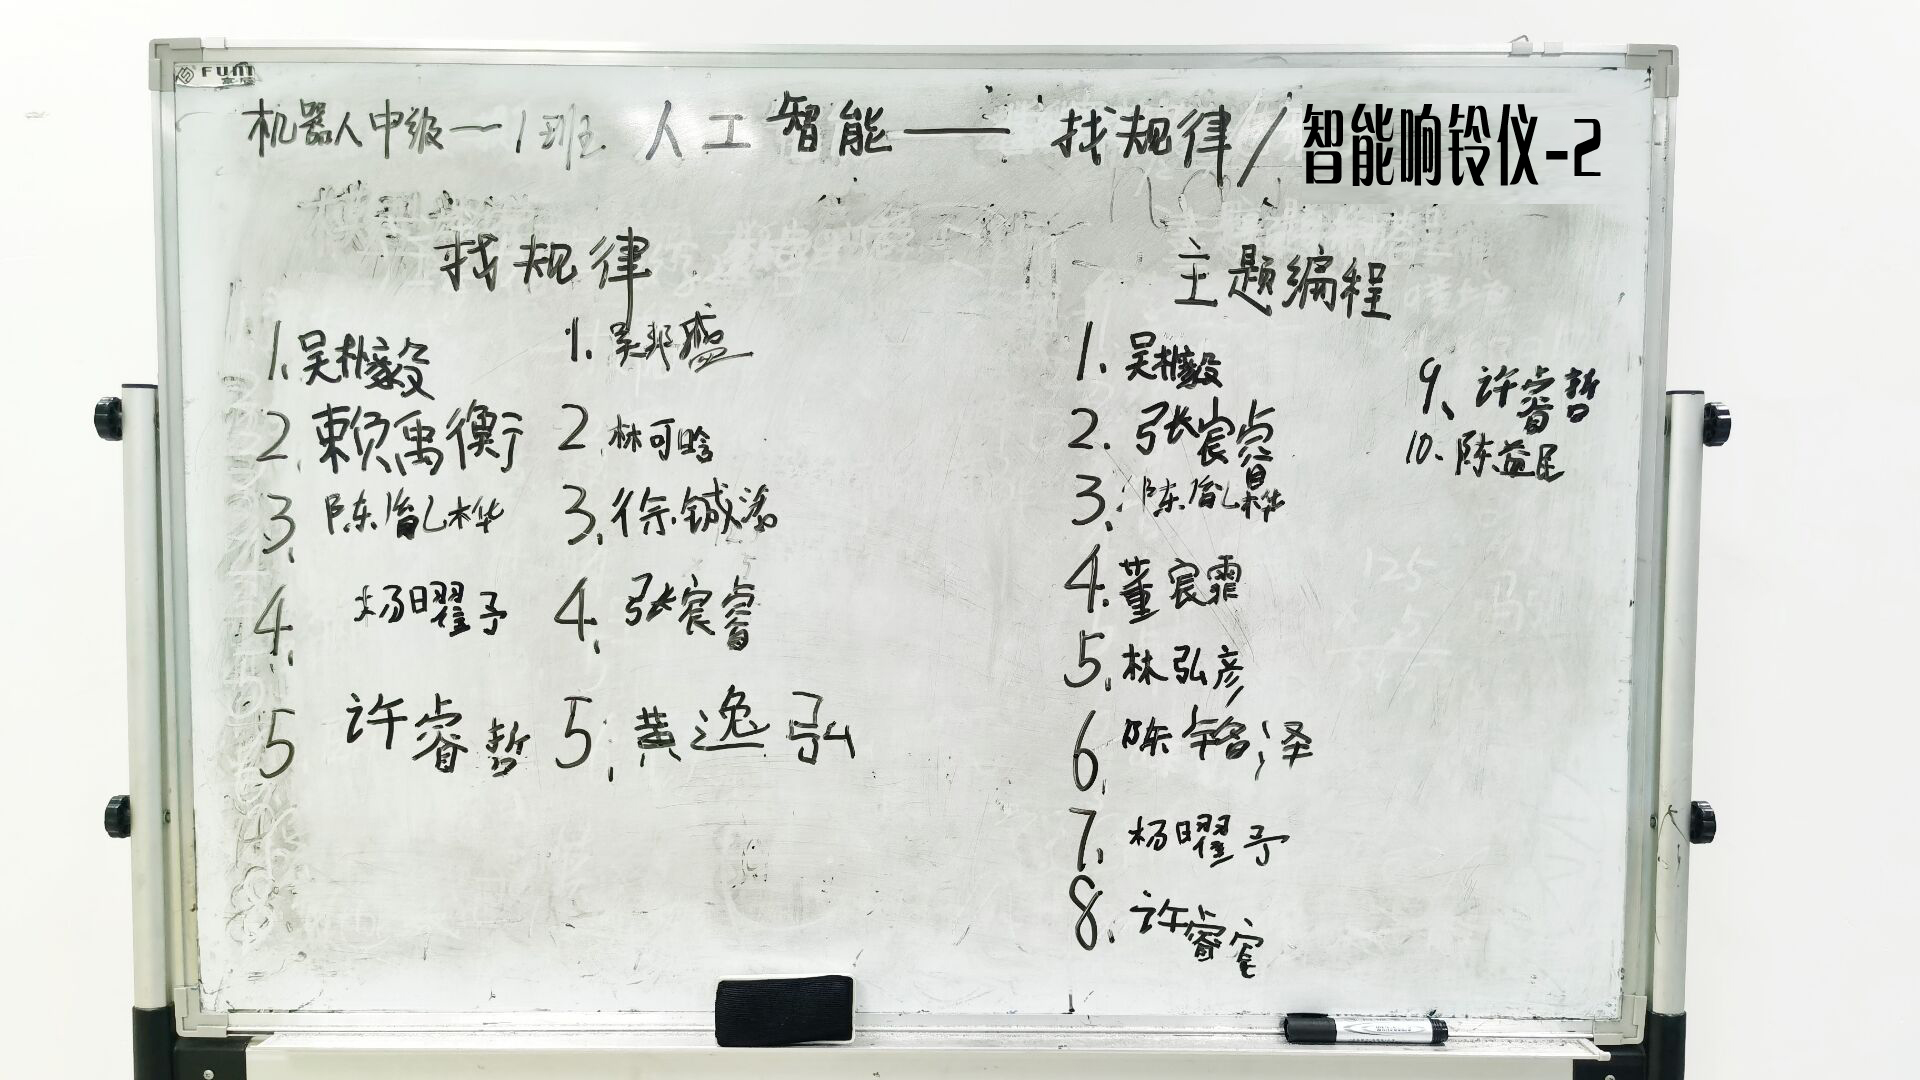 FUNT
机器人中级——1班 人工智能—— 找规律/智能响铃仪-2
找规律
1.吴朴毅
2.赖禹衡
3.陈胤桦
4.杨曜予
5 许睿哲
1.吴邦盛
2.林可晗
3.徐铖涤
4.张宸睿
5.黄逸弘
主题编程
1.吴朴毅
2.张宸睿
3.陈胤桦
4.董宸霏
5.林弘彦
6.陈铭泽
7.杨曜予
8.许睿宸
9、许睿哲
10.陈益民